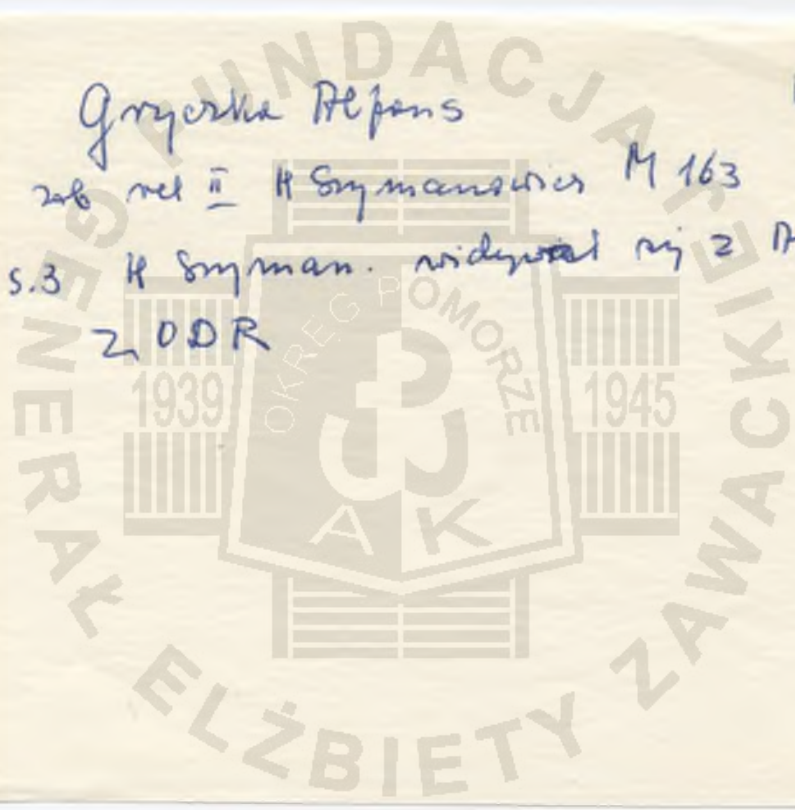 Gryczka Alfons
zob rel II H Szymanowicz M 163
s.3 H Szyman. widywał się z A
z ODR
FUNDACJA
GENERAŁ ELŻBIETY ZAWACKIEJ
OKRĘG POMORZE
1939 1945
AK